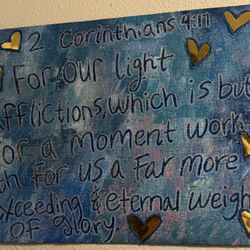 2 Corinthians 4:17
For our light
afflictions, which is but
for a moment work
th for us a far more
exceeding & eternal weigh
of glory.